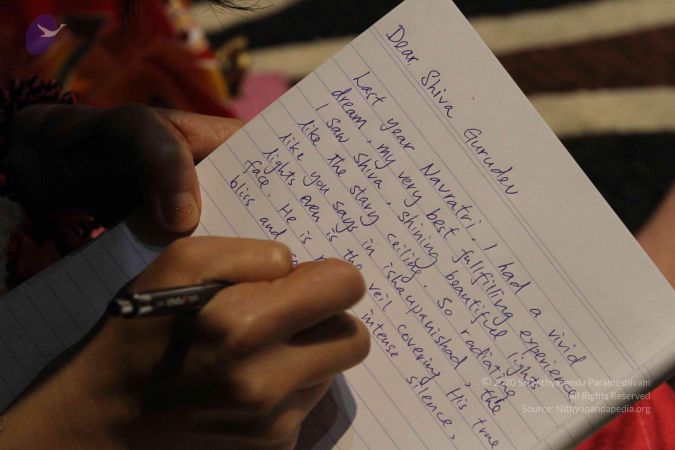 Dear Shiva Gurudev
Last year Navratri, I had a vivid
dream, my very best fullfilling experience
I saw Shiva, shining beautiful lights
like the stary ceiling. So radiating
like you says in ishaupanishad, the
lights even is the veil covering His true
face. He is intense silence,
bliss and
© 2020 Sri Nithyananda Paramashivam
All Rights Reserved
Source: Nithyanandapedia.org